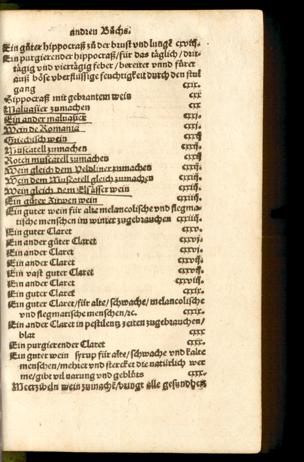 andren Bůchs.
Ein gůter hippocraß zů der brust vnd lunge cxviij.
Ein purgierender hippocraß/für das täglich/drit-
tägig vnd viertägig feber/bereitet vnnd füret
auß böse vberflüssige feuchtigkeit durch den stůl
gang cxix.
Hippocraß mit gebrantem wein cxx
Maluasier zůmachen cxx
Ein ander maluasier cxxj.
Wein de Romania cxxj.
Griechisch wein cxxij
Muscatell zůmachen cxxij
Roten muscatell zůmachen cxxij
Wein gleich dem Veldliner zůmachen cxxij.
Wein dem Muscatell gleich zůmachen cxxiij.
Wein gleich dem Elsässer wein cxxiij.
Ein gůter Zitwen wein cxxiij.
Ein guter wein für alte melancolische vnd flegma-
tische menschen im winter zugebrauchen cxxiiij.
Ein guter Claret cxxv.
Ein ander gůter Claret cxxvj.
Ein ander Claret cxxvj.
Ein ander Claret cxxvij.
Ein vast guter Claret cxxvij.
Ein ander Claret cxxviij.
Ein guter Claret cxxix.
Ein guter Claret/für alte/schwache/melancolische
vnd flegmatische menschen/ꝛc. cxxix.
Ein ander Claret in pestilentz zeiten zugebrauchen/
blat cxxx.
Ein purgierender Claret cxxx.
Ein guter wein syrup für alte/schwache vnd kalte
menschen/mehret vnd stercket die natürlich wer
me/gibt vil narung vnd geblůts cxxx.
Meerzibeln wein zůmachē/bringt alle gesundheit